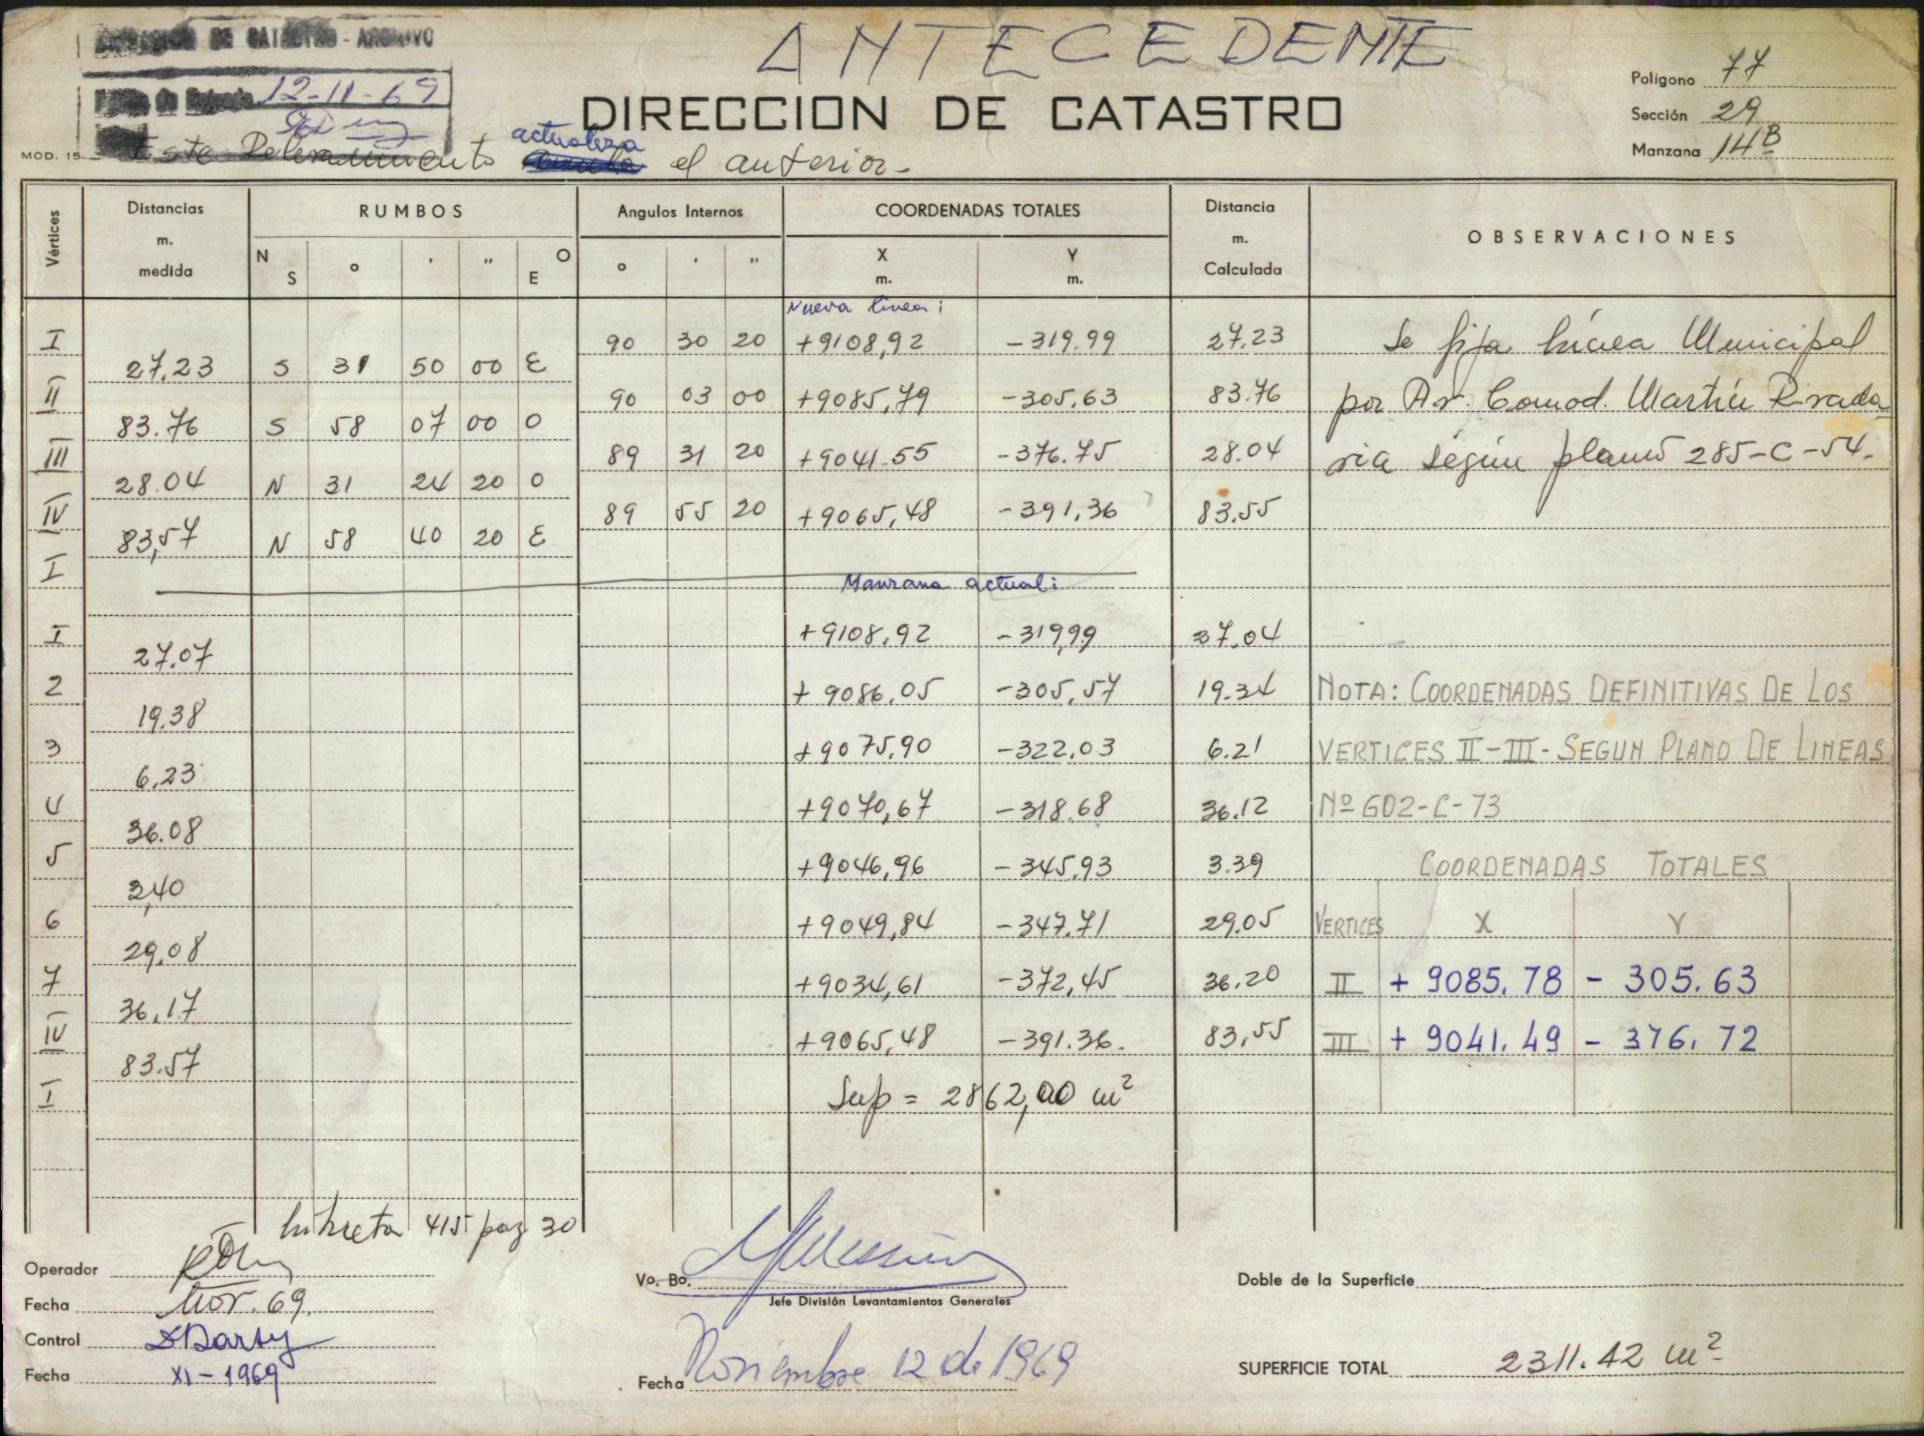 ANTECEDENTE
DE CATASTRO - ARCHIVO
12-11-69
DIRECCION DE CATASTRO
Poligono 77
Sección 29
Manzana 14B
MOD. 15
Este Relevamiento actualiza el anterior.-
Vértices
Distancias m. medida
RUMBOS
N S ° ' " O E
Angulos Internos
° ' "
COORDENADAS TOTALES
X m. Y m.
Distancia m. Calculada
OBSERVACIONES
Nueva linea:
I 90 30 20 +9108,92 -319.99 27.23 Se fija Línea Municipal
27,23 S 31 50 00 E
II 90 03 00 +9085,79 -305,63 83.76 por Av. Comod. Martín Rivada
83.76 S 58 07 00 O
III 89 31 20 +9041.55 -376.75 28.04 via según plano 285-C-54.
28.04 N 31 24 20 O
IV 89 55 20 +9065,48 -391,36 83.55
83,57 N 58 40 20 E
I
Manzana actual:
I +9108,92 -319,99 27,04
27.07
2 +9086,05 -305,57 19.34 NOTA: COORDENADAS DEFINITIVAS DE LOS
19.38
3 +9075,90 -322,03 6.21 VERTICES II-III-SEGUN PLANO DE LINEAS
6,23
4 +9070,67 -318.68 36.12 Nº 602-C-73
36.08
5 +9046,96 -345,93 3.39 COORDENADAS TOTALES
3,40
6 +9049,84 -347.71 29.05 VERTICES X Y
29,08
7 +9034,61 -372,45 36.20 II + 9085.78 - 305.63
36,17
IV +9065,48 -391.36. 83,55 III + 9041.49 - 376.72
83.57
I Sup = 2862,00 m²
Libreta 415 pag 30
Operador
Fecha Nov. 69.
Control
Fecha XI-1969
Vo. Bo.
Jefe División Levantamientos Generales
Fecha Noviembre 12 de 1969
Doble de la Superficie
SUPERFICIE TOTAL 2311.42 m²